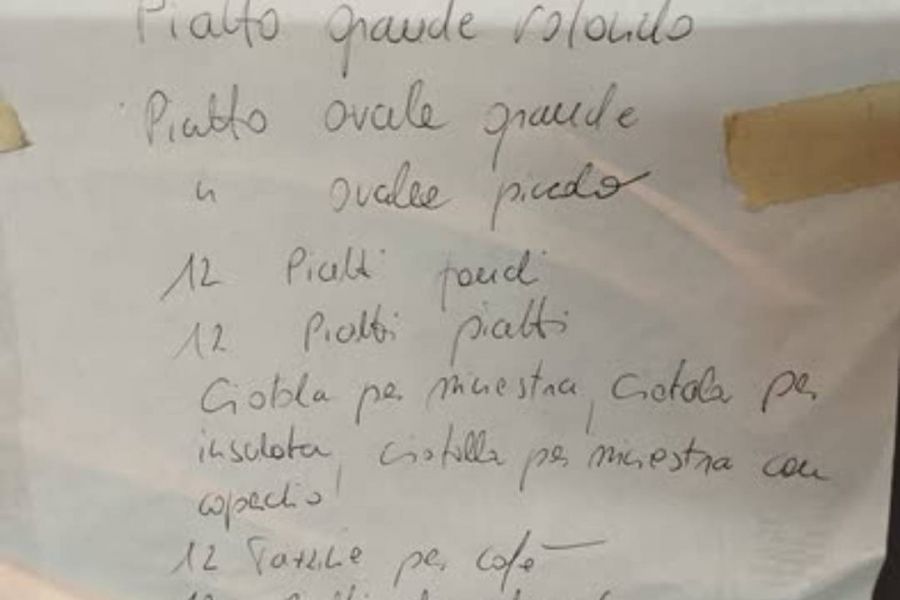 Piatto grande rotondo
Piatto ovale grande
" ovale piccolo
12 Piatti fondi
12 Piatti piatti
Ciotola per minestra, Ciotola per
insalata, ciotolla per minestra con
copechio
12 Tazzine per cafè
12